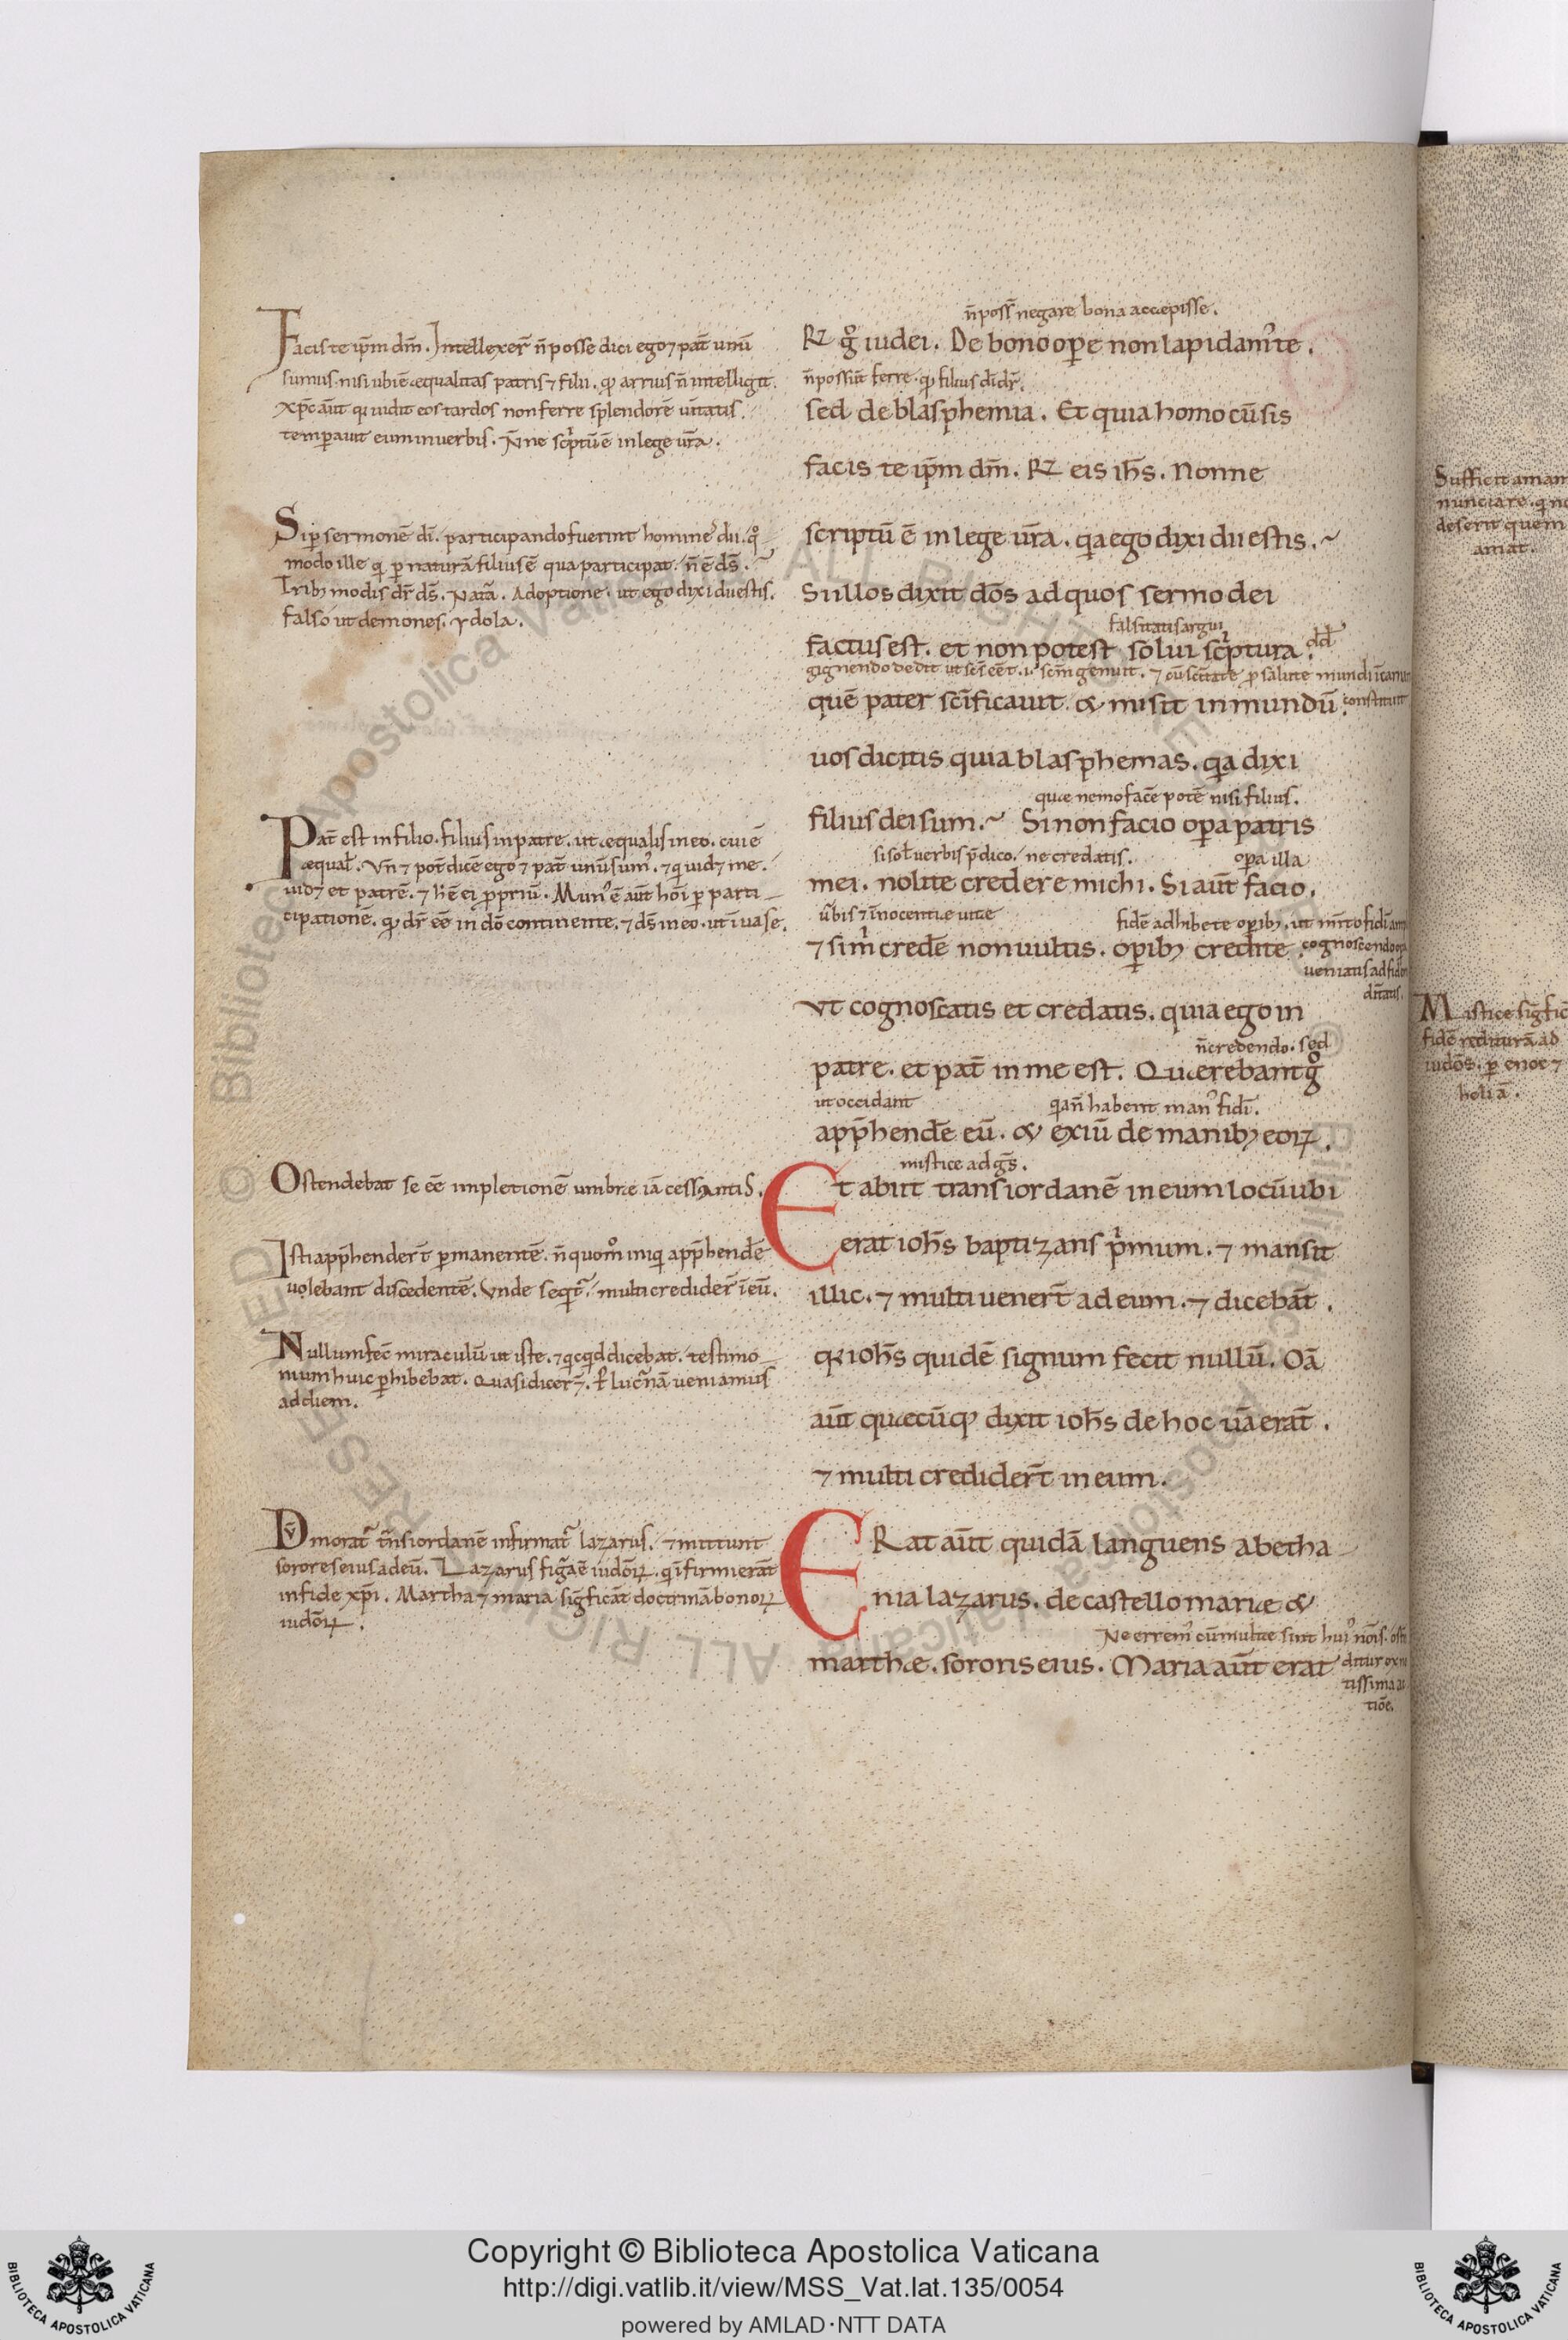 Facis te ip̄m dm̄. Intellexer̄ n̄ posse dici ego ⁊ pat̄ unū
sumus. nisi ubi ē æqualitas patris ⁊ filii. qđ arrius n̄ intelligit.
xp̄c aūt qi uidit eos tardos non ferre splendorē ueritatis
temperauit eum in uerbis. N̄ne scriptū ē in lege ur̄a.
Si ꝑ sermonē di. participando fuerint homines dii. qͦ
modo ille qi ꝑ naturā filius ē qua participat. n̄ ē ds̄.
Tribꝫ modis dr̄ ds̄. Natā. Adoptione. ut ego dixi dii estis.
falso ut demones. ydola.
Pat̄ est in filio. filius in patre. ut æqualis in eo. cui ē
æqual. Vn̄ ⁊ pot̄ dicē ego ⁊ pat̄ unū sum'. ⁊ qi uidꝫ me.
uidꝫ et patrē. ⁊ h̄ ē ei ꝓpriū. Mun' ē aūt hoi ꝑ parti
cipationē. qđ dr̄ eē in dō continente. ⁊ ds̄ in eo. ut ī uase.
Ostendebat se eē impletionē umbræ iā cessantis.
Isti app̄hender̄t permanentē. n̄ quomͦ iniqi app̄hendē
uolebant discedentē. Vnde seqit̄. multi credider̄ ī eū.
Nullum fec̄ miraculū ut iste. ⁊ qicqid dicebat. testimo
nium huic perhibebat. Quasi dicer̄. ꝑ lucernā ueniamus
ad diem.
Dn̄ morat̄ trans iordanē infirmat̄ lazarus. ⁊ mittunt
sorores eius ad eū. Lazarus figura ē iudōꝝ. qi īfirmi erāt
in fide xp̄i. Martha ⁊ maria significāt doctrinā bonoꝝ
iudōꝝ.
n̄ poss̄ negare bona accepisse.
R̄ gͦ iudei. De bono opere non lapidam' te.
n̄ possūt ferre. qđ filius di dr̄.
sed de blasphemia. Et quia homo cū sis
facis te ip̄m dm̄. R̄ eis ih̄s. Nonne
scriptū ē in lege ur̄a. qia ego dixi dii estis.
Si illos dixit deos ad quos sermo dei
falsitatis argui
factus est. et non potest solui scriptura.
gignendo dedit ut scs̄ eēt. scm̄ genuit. ⁊ cū scitate ꝓ salute mundi
quē pater scīficauit & misit in mundū.
constituit
uos dicitis quia blasphemas. qia dixi
quæ nemo facē potē nisi filius.
filius dei sum. Si non facio opera patris
si sol uerbis p̄dico. ne credatis. opera illa
mei. nolite credere michi. Si aūt facio.
ūbis ⁊ īnocentiæ uitæ fidē adhibete operibꝫ. ut
⁊ si m̄ credē non uultis. operibꝫ credite.
cognoscendo
ueniatis ad
Vt cognoscatis et credatis. quia ego in
n̄ credendo. sed
patre. et pat̄ in me est. Quærebant gͦ
ut occidant qia n̄ habent man' fidi.
app̄hendē eū. & exiū de manibꝫ eoꝝ.
mistice ad gs̄.
Et abiit trans iordanē in eum locū ubi
erat ioh̄s baptizans primum. ⁊ mansit
illic. ⁊ multi uener̄t ad eum. ⁊ dicebāt.
qi ioh̄s quidē signum fecit nullū. Oā
aūt quæcūqꝫ dixit ioh̄s de hoc uā erāt.
⁊ multi credider̄t in eum.
ERat aūt quidā languens abetha
nia lazarus. de castello mariæ &
Ne errem' cū multæ sint hui' nōis.
marthæ. sororis eius. Maria aūt erat
ditur
tissima
tiōe.
Sufficit
nunciare. qi
deserit quem
amat.
Mistice
fidē rediturā ad
iudōs. ꝑ enoc ⁊
heliā.
Copyright © Biblioteca Apostolica Vaticana
http://digi.vatlib.it/view/MSS_Vat.lat.135/0054
powered by AMLAD·NTT DATA
BIBLIOTECA APOSTOLICA VATICANA
BIBLIOTECA APOSTOLICA VATICANA